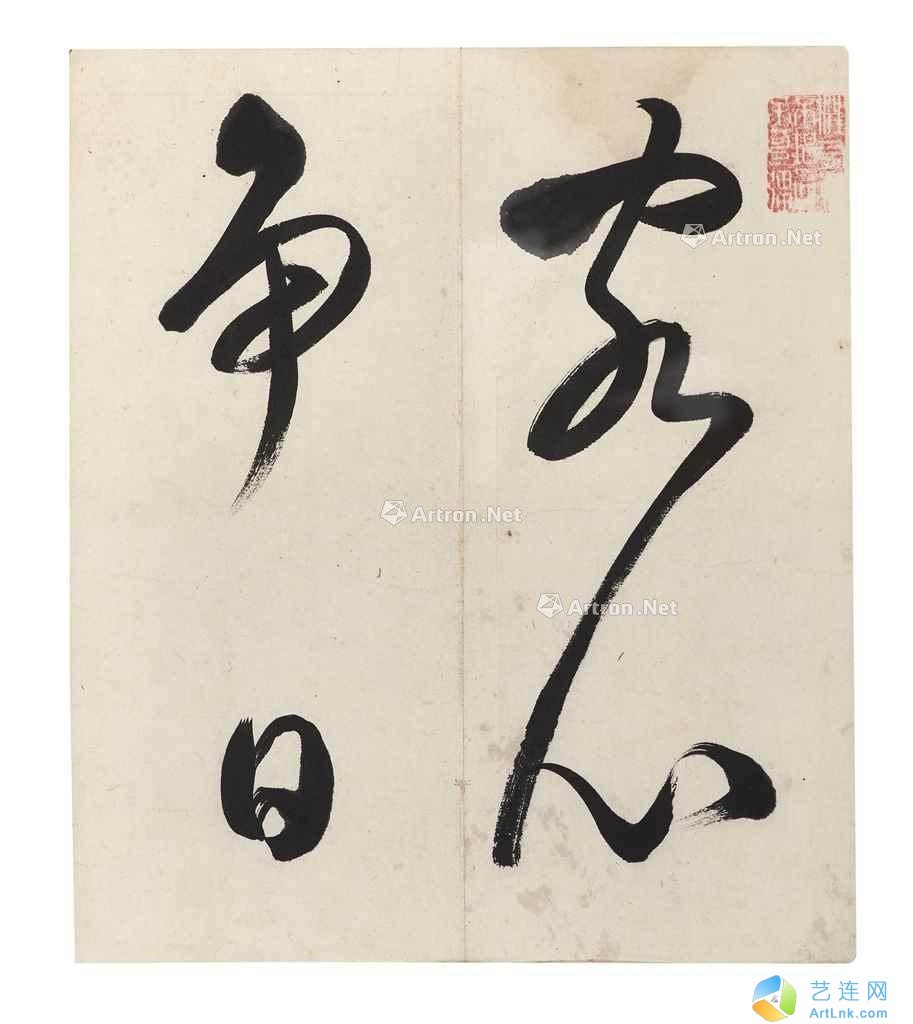 客心
争日
Artron.Net
Artron.Net
Artron.Net
艺连网
ArtLnk.com